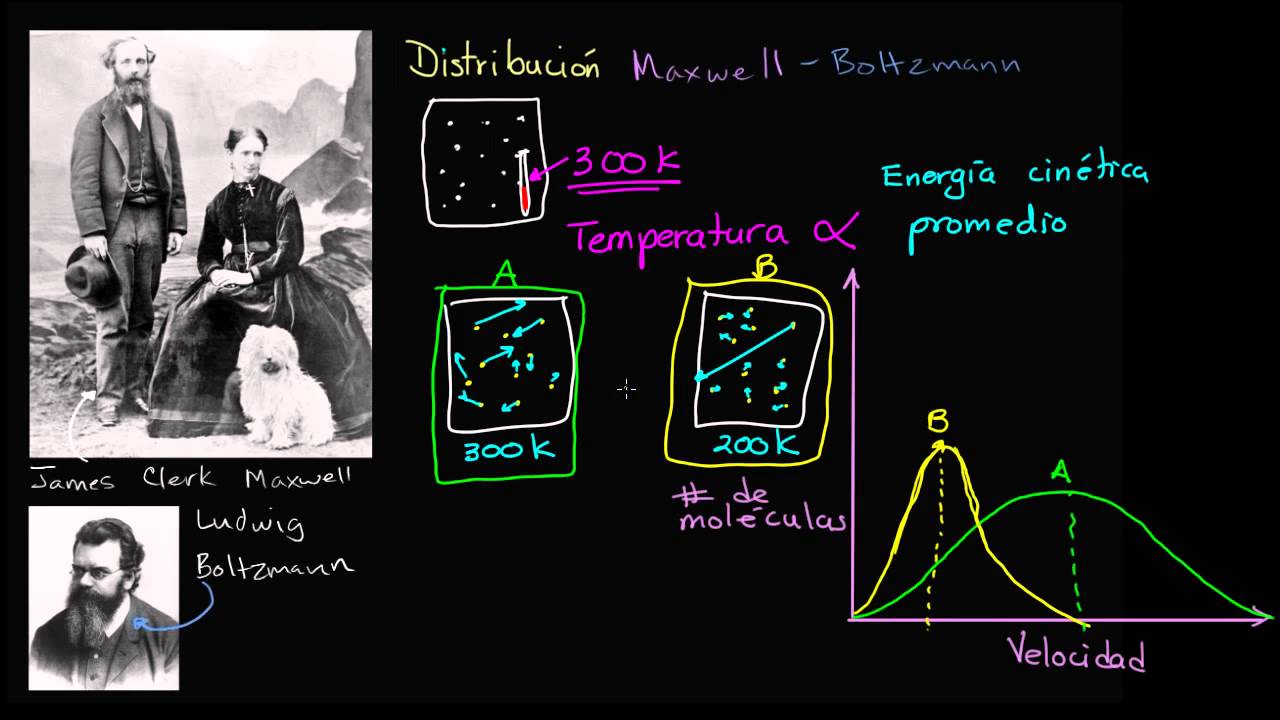 Distribución Maxwell - Boltzmann
300 K
Energía cinética
promedio
Temperatura ∝
A
B
300 K
200 K
B
A
James Clerk Maxwell
# de
moléculas
Ludwig
Boltzmann
Velocidad